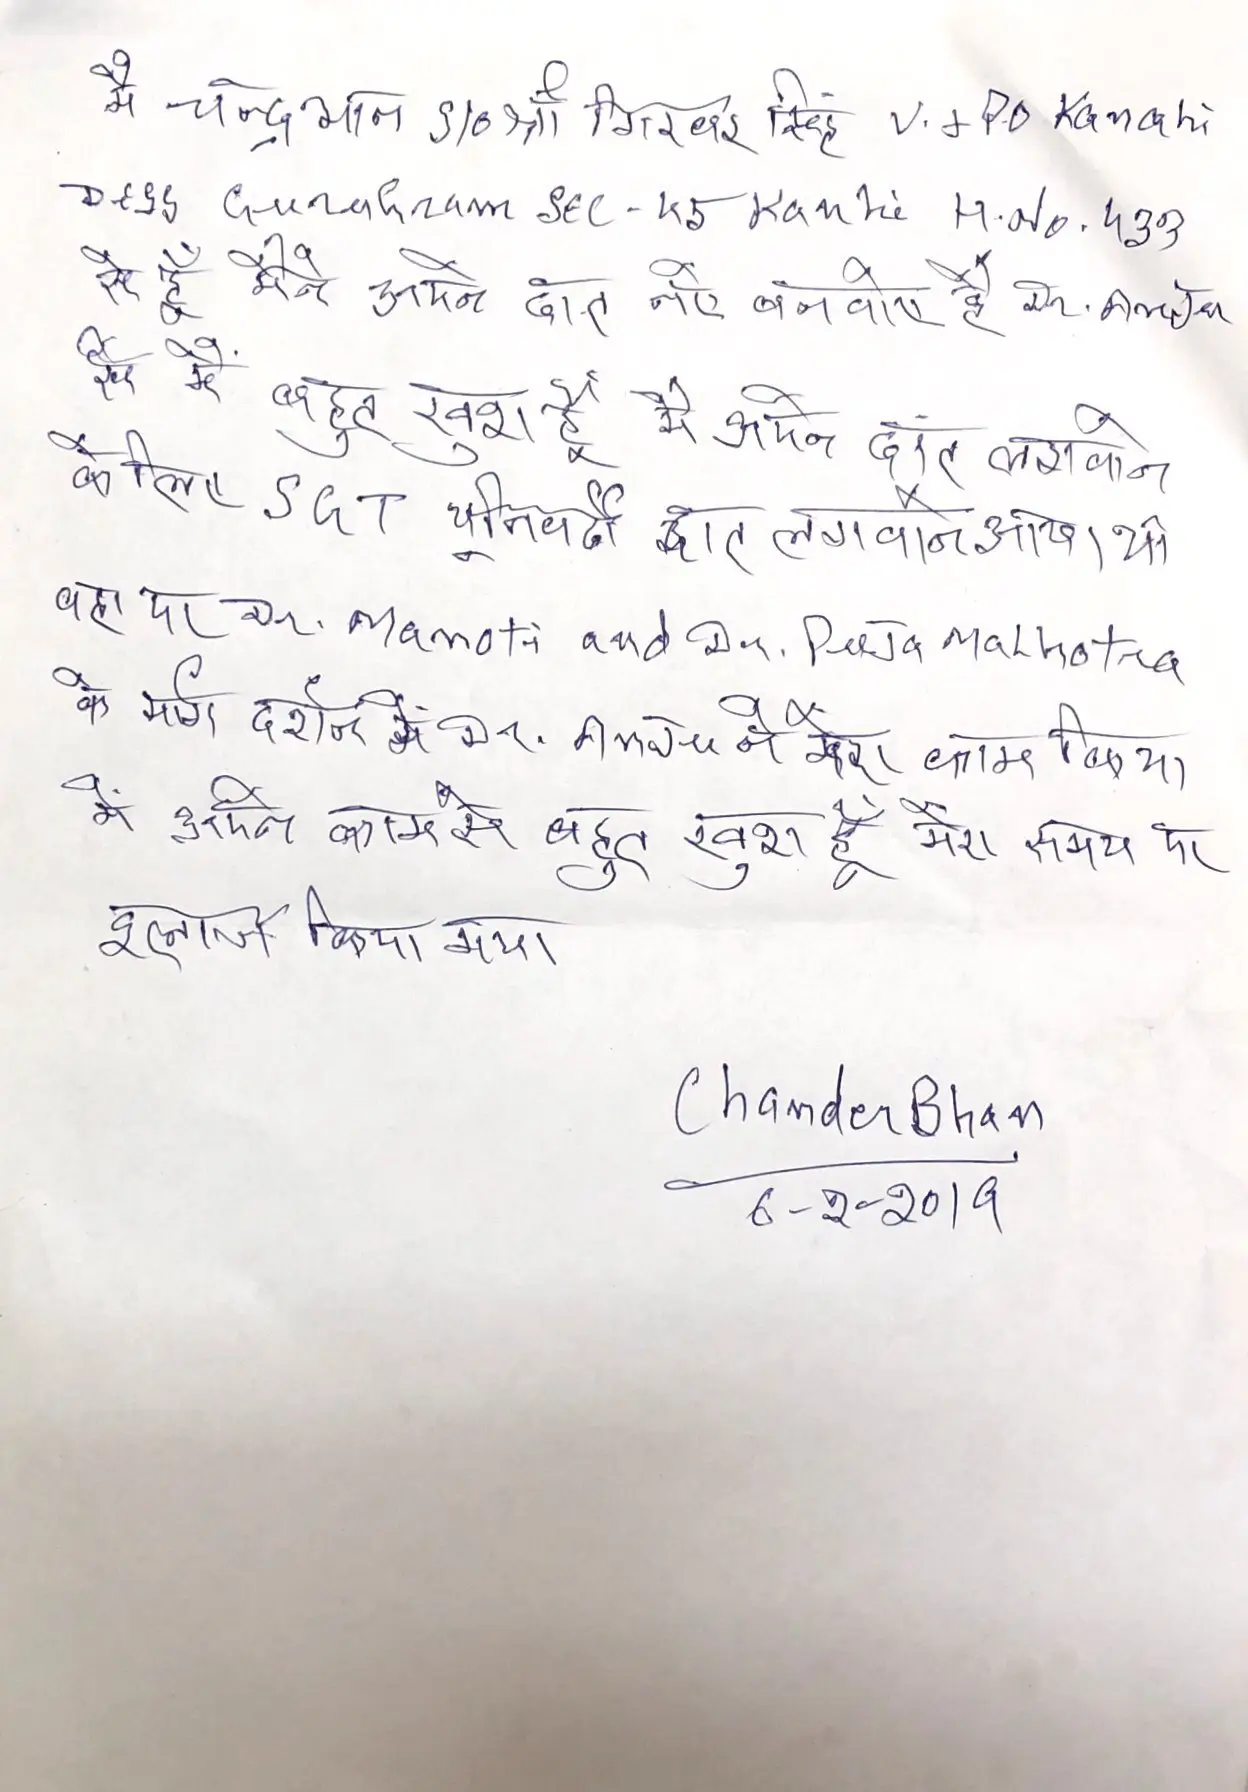 मै चन्द्रभान S/o श्री गिरवर सिंह V. & P.O Kanahi
Gurahram SEC-45 Kanhi H.No. 433
से हूँ मैने अपने दात नऐ बनवाऐ है Dr. Anju
से मैं बहुत खुश हूँ मै अपने दांत लगवाने
के लिए SGT यूनिवर्सटी दात लगवाने आया था
वहा पर Dr. Manoti and Dr. Puja Malhotra
के मार्ग दर्शन में Dr. Anju ने मेरा काम किया
में अपने काम से बहुत खुश हूँ मेरा समय पर
इलाज किया गया
Chander Bhan
6-2-2019